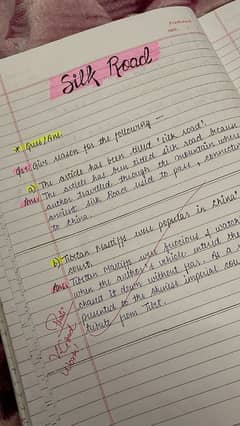 Silk Road
* Ques/Ans.
Ques: Give reason for the following —
a) The article has been titled 'silk road'.
Ans: The article has been titled silk road because
author travelled through the mountain where
ancient silk Road used to pass, connecting
to china.
b) Tibetan Mastiffs were popular in china's
court.
Ans: Tibetan Mastiffs were ferocious
when the author's vehicle entered their
chased it down without fear. As a
presented to the chinese imperial court
tribute from Tibet.